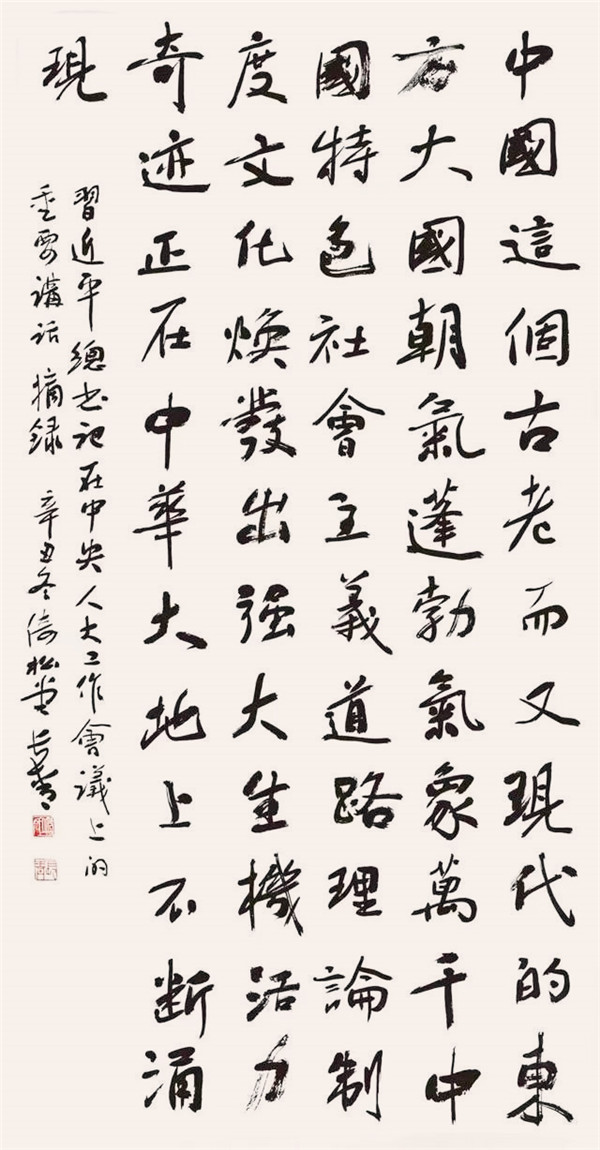 中國這個古老而又現代的東
方大國朝氣蓬勃氣象萬千中
國特色社會主義道路理論制
度文化焕發出强大生機活力
奇迹正在中華大地上不断涌
現
習近平總书记在中央人大工作會議上的
重要講话摘録 辛丑冬